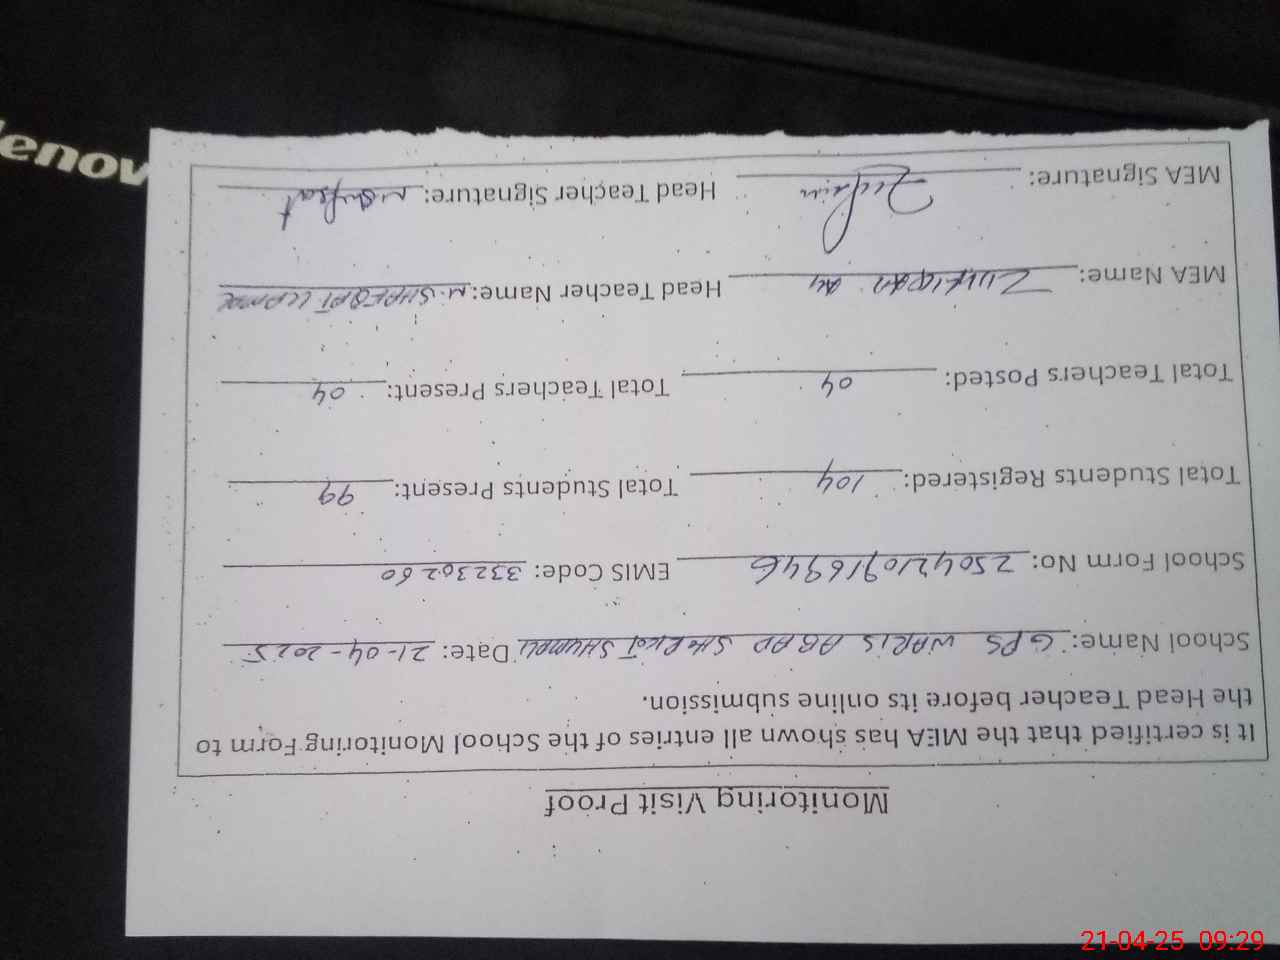 Monitoring Visit Proof
It is certified that the MEA has shown all entries of the School Monitoring Form to
the Head Teacher before its online submission.
School Name: GPS WARIS ABAD SHORKOT SHUMALI Date: 21-04-2025
School Form No: 25042109169446 EMIS Code: 33230260
Total Students Registered: 104 Total Students Present: 99
Total Teachers Posted: 04 Total Teachers Present: 04
MEA Name: ZULFIQAR Ali Head Teacher Name: M. SHAFQAT
MEA Signature: Head Teacher Signature:
lenov
21-04-25 09:29